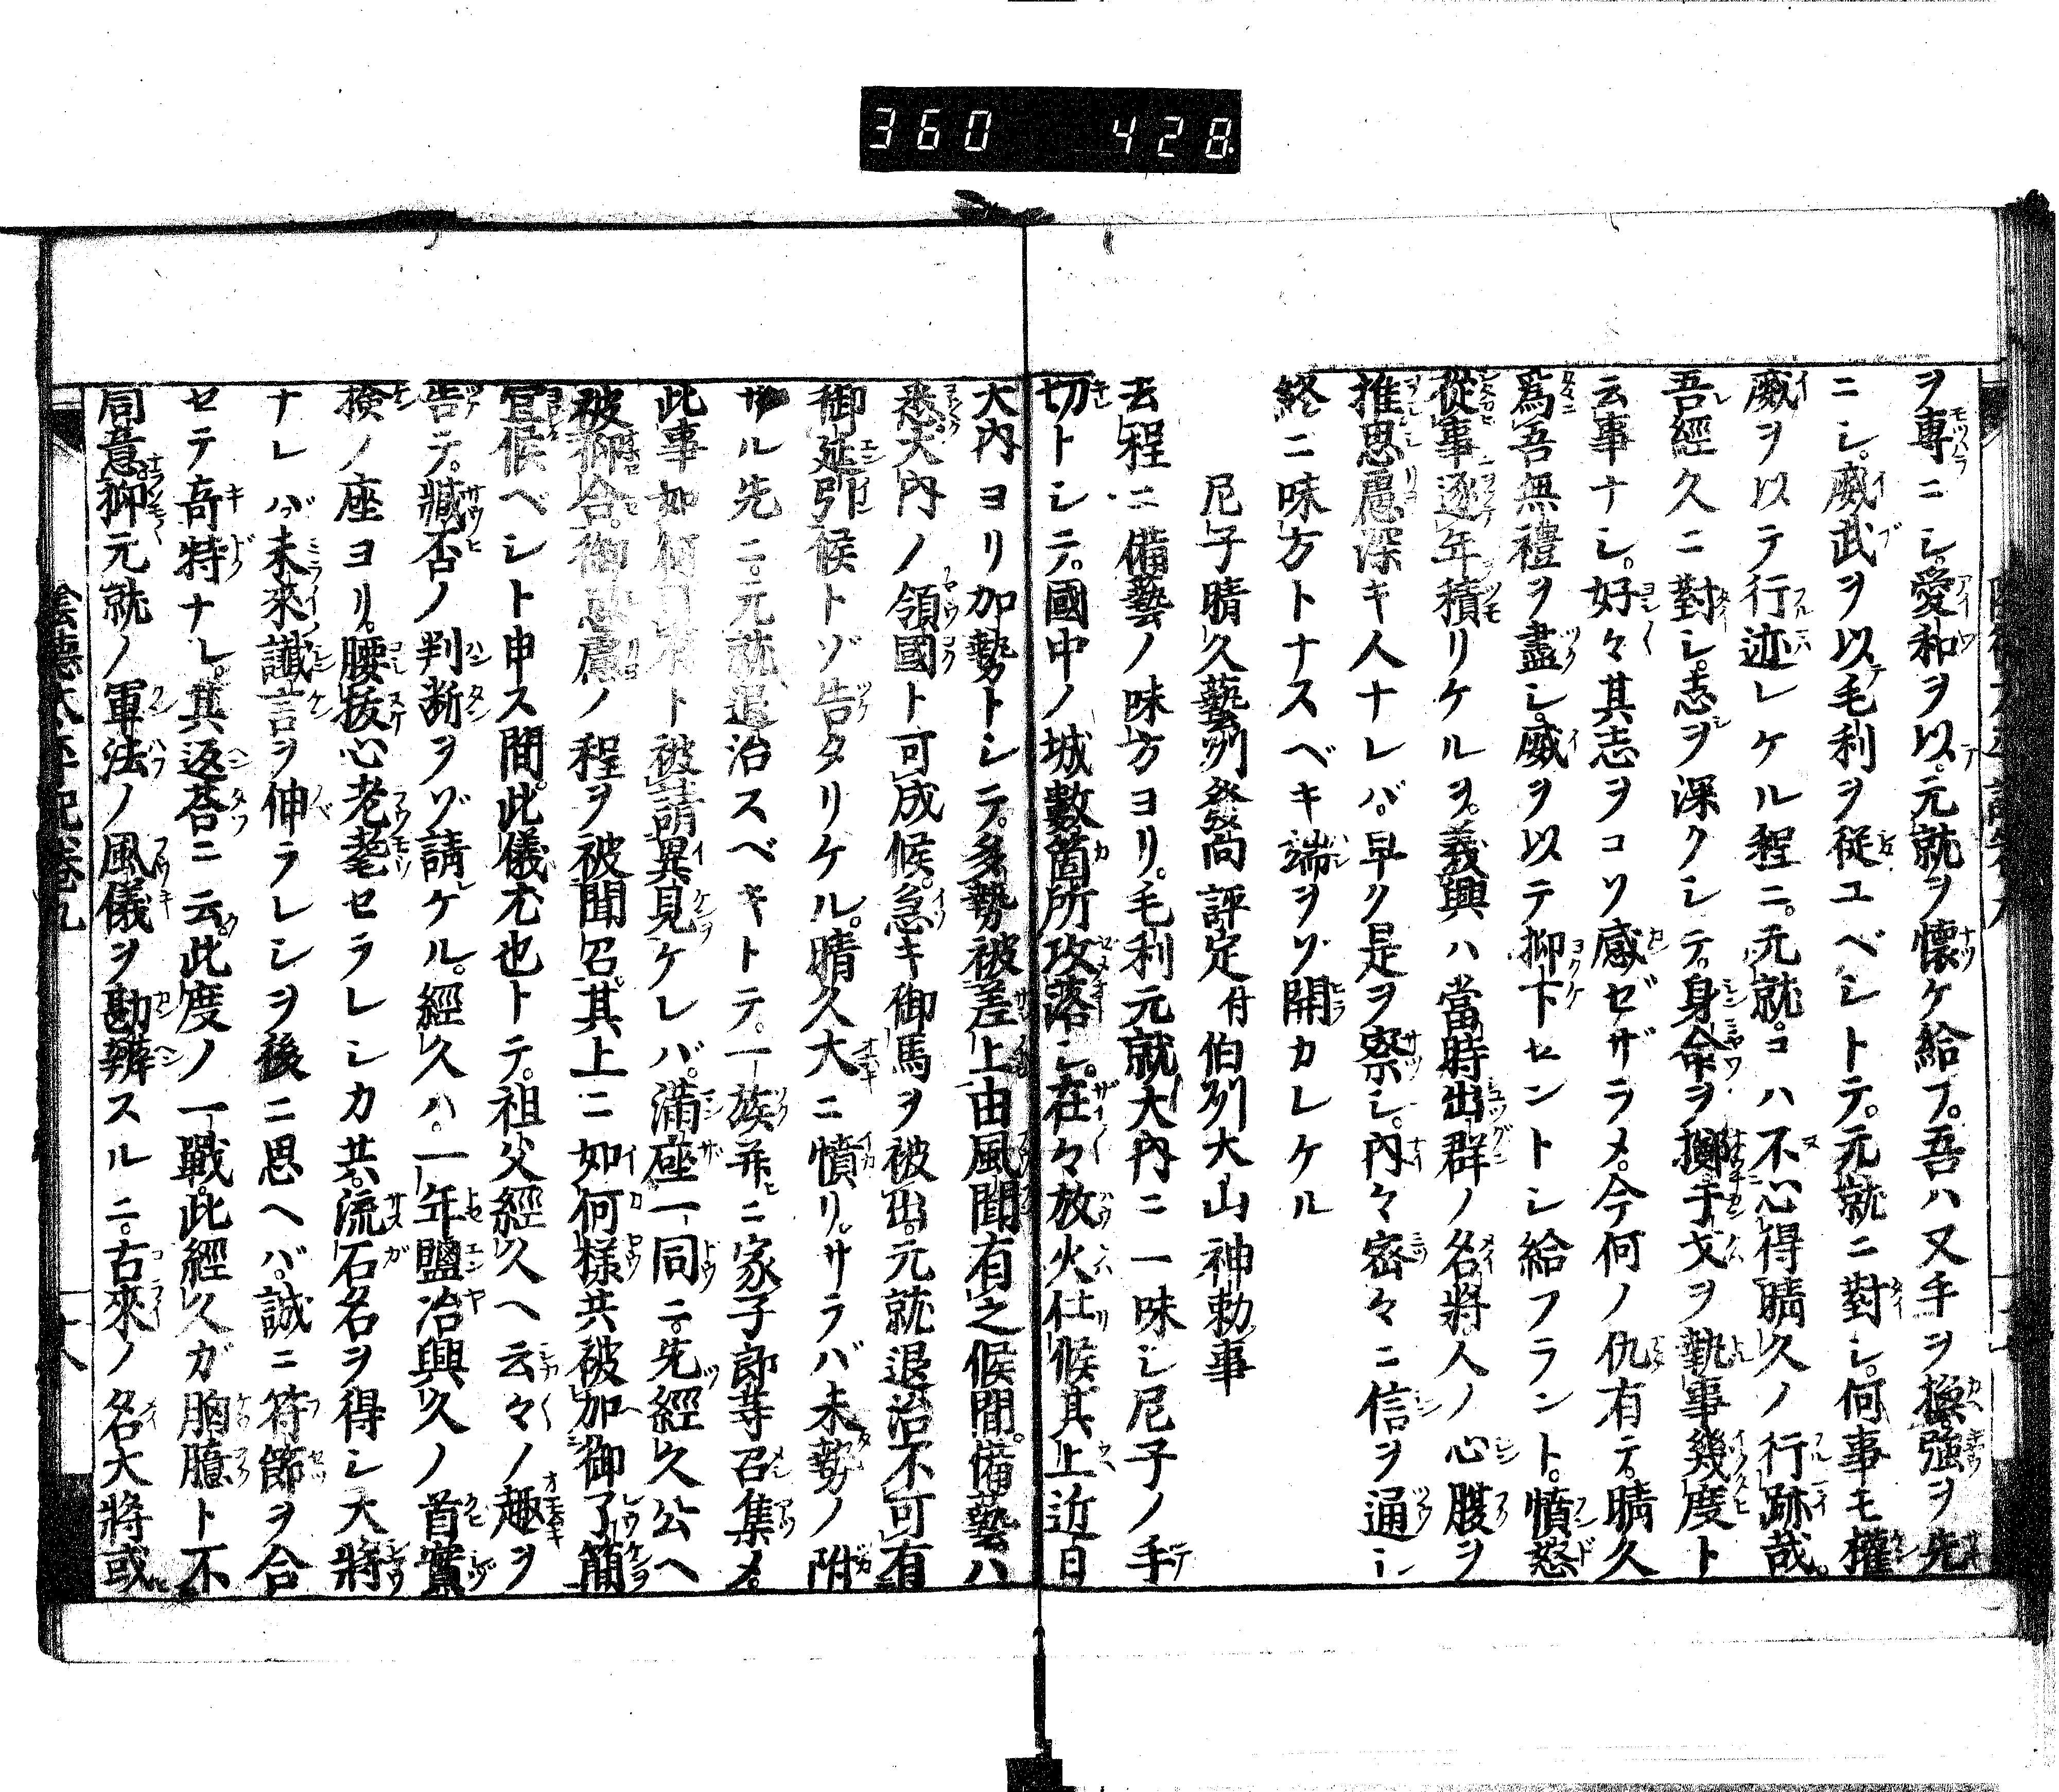 360 428
ヲ専ニシ。愛和ヲ以。元就ヲ懐ケ給フ。吾ハ又手ヲ換強ヲ先
ニシ。威武ヲ以テ毛利ヲ従ユベシトテ。元就ニ對シ。何事モ權
威ヲ以テ行迹レケル程ニ。元就。コハ不心得晴久ノ行跡哉。
吾經久ニ對シ。志ヲ深クシテ。身命ヲ擲チ干戈ヲ執事幾度ト
云事ナシ。好々其志ヲコソ感ゼザラメ。今何ノ仇有テ。晴久
爲吾無禮ヲ盡シ。威ヲ以テ抑下セントシ給フラント。憤怒
從事逐年積リケルヲ。義興ハ當時出群ノ名將。人ノ心腹ヲ
推思慮深キ人ナレバ。早ク是ヲ察シ。内々密々ニ信ヲ通シ
終ニ味方トナスベキ端ヲゾ開カレケル
尼子晴久藝州發向評定付伯州大山神勅事
去程ニ備藝ノ味方ヨリ。毛利元就大内ニ一味シ尼子ノ手
切トシテ。國中ノ城數箇所攻落シ。在々放火仕候其上近日
大内ヨリ加勢トシテ。多勢被差上由風聞有之候間。備藝ハ
悉大内ノ領國ト可成候。急キ御馬ヲ被出。元就退治不可有
御延引候トゾ告タリケル。晴久大ニ憤リ。サラバ未勢ノ附
ザル先ニ。元就退治スベキトテ。一族并ニ家子郎等召集メ。
此事如何可有ト被請異見ケレバ。滿座一同ニ。先經久公ヘ
被仰合。御思慮ノ程ヲ被聞召。其上ニ如何様共被加御了簡
宜候ベシト申ス間。此儀尤也トテ。祖父經久ヘ云々ノ趣ヲ
告テ。臧否ノ判斷ヲゾ請ケル。經久ハ。一年鹽冶興久ノ首實
撿ノ座ヨリ。腰拔心老耄セラレシカ共。流石名ヲ得シ大將
ナレバ未來讖言ヲ伸ラレシヲ後ニ思ヘバ。誠ニ符節ヲ合
セテ奇特ナレ。其返荅ニ云。此度ノ一戰。此經久ガ胸臆ト不
同意抑元就ノ軍法ノ風儀ヲ勘辨スルニ。古來ノ名大將或
陰德太平記卷九
十八